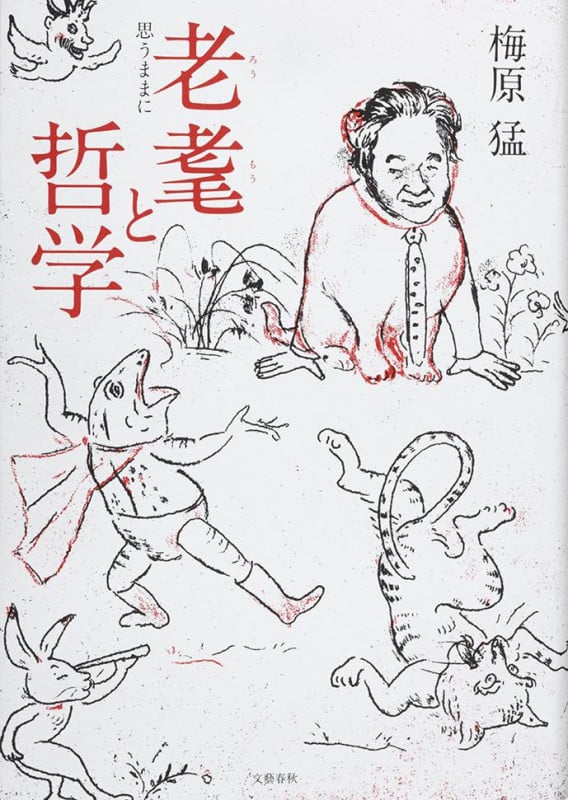 梅原 猛
老耄と
ろう もう
哲学
思うままに
文藝春秋